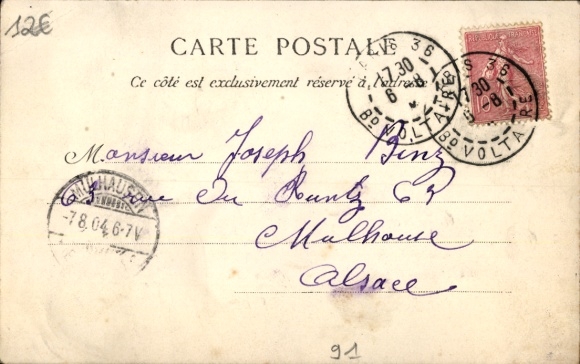 12€
CARTE POSTALE
Ce côté est exclusivement réservé à l'adresse
REPUBLIQUE FRANÇAISE
10
PARIS 36
17 30
6 - 8
Bd VOLTAIRE
PARIS 36
17 30
6 - 8
Bd VOLTAIRE
Monsieur Joseph Binz
63 rue du Runtz 63
Mulhouse
Alsace
MÜLHAUSEN
-7.8.04.6-7V
91